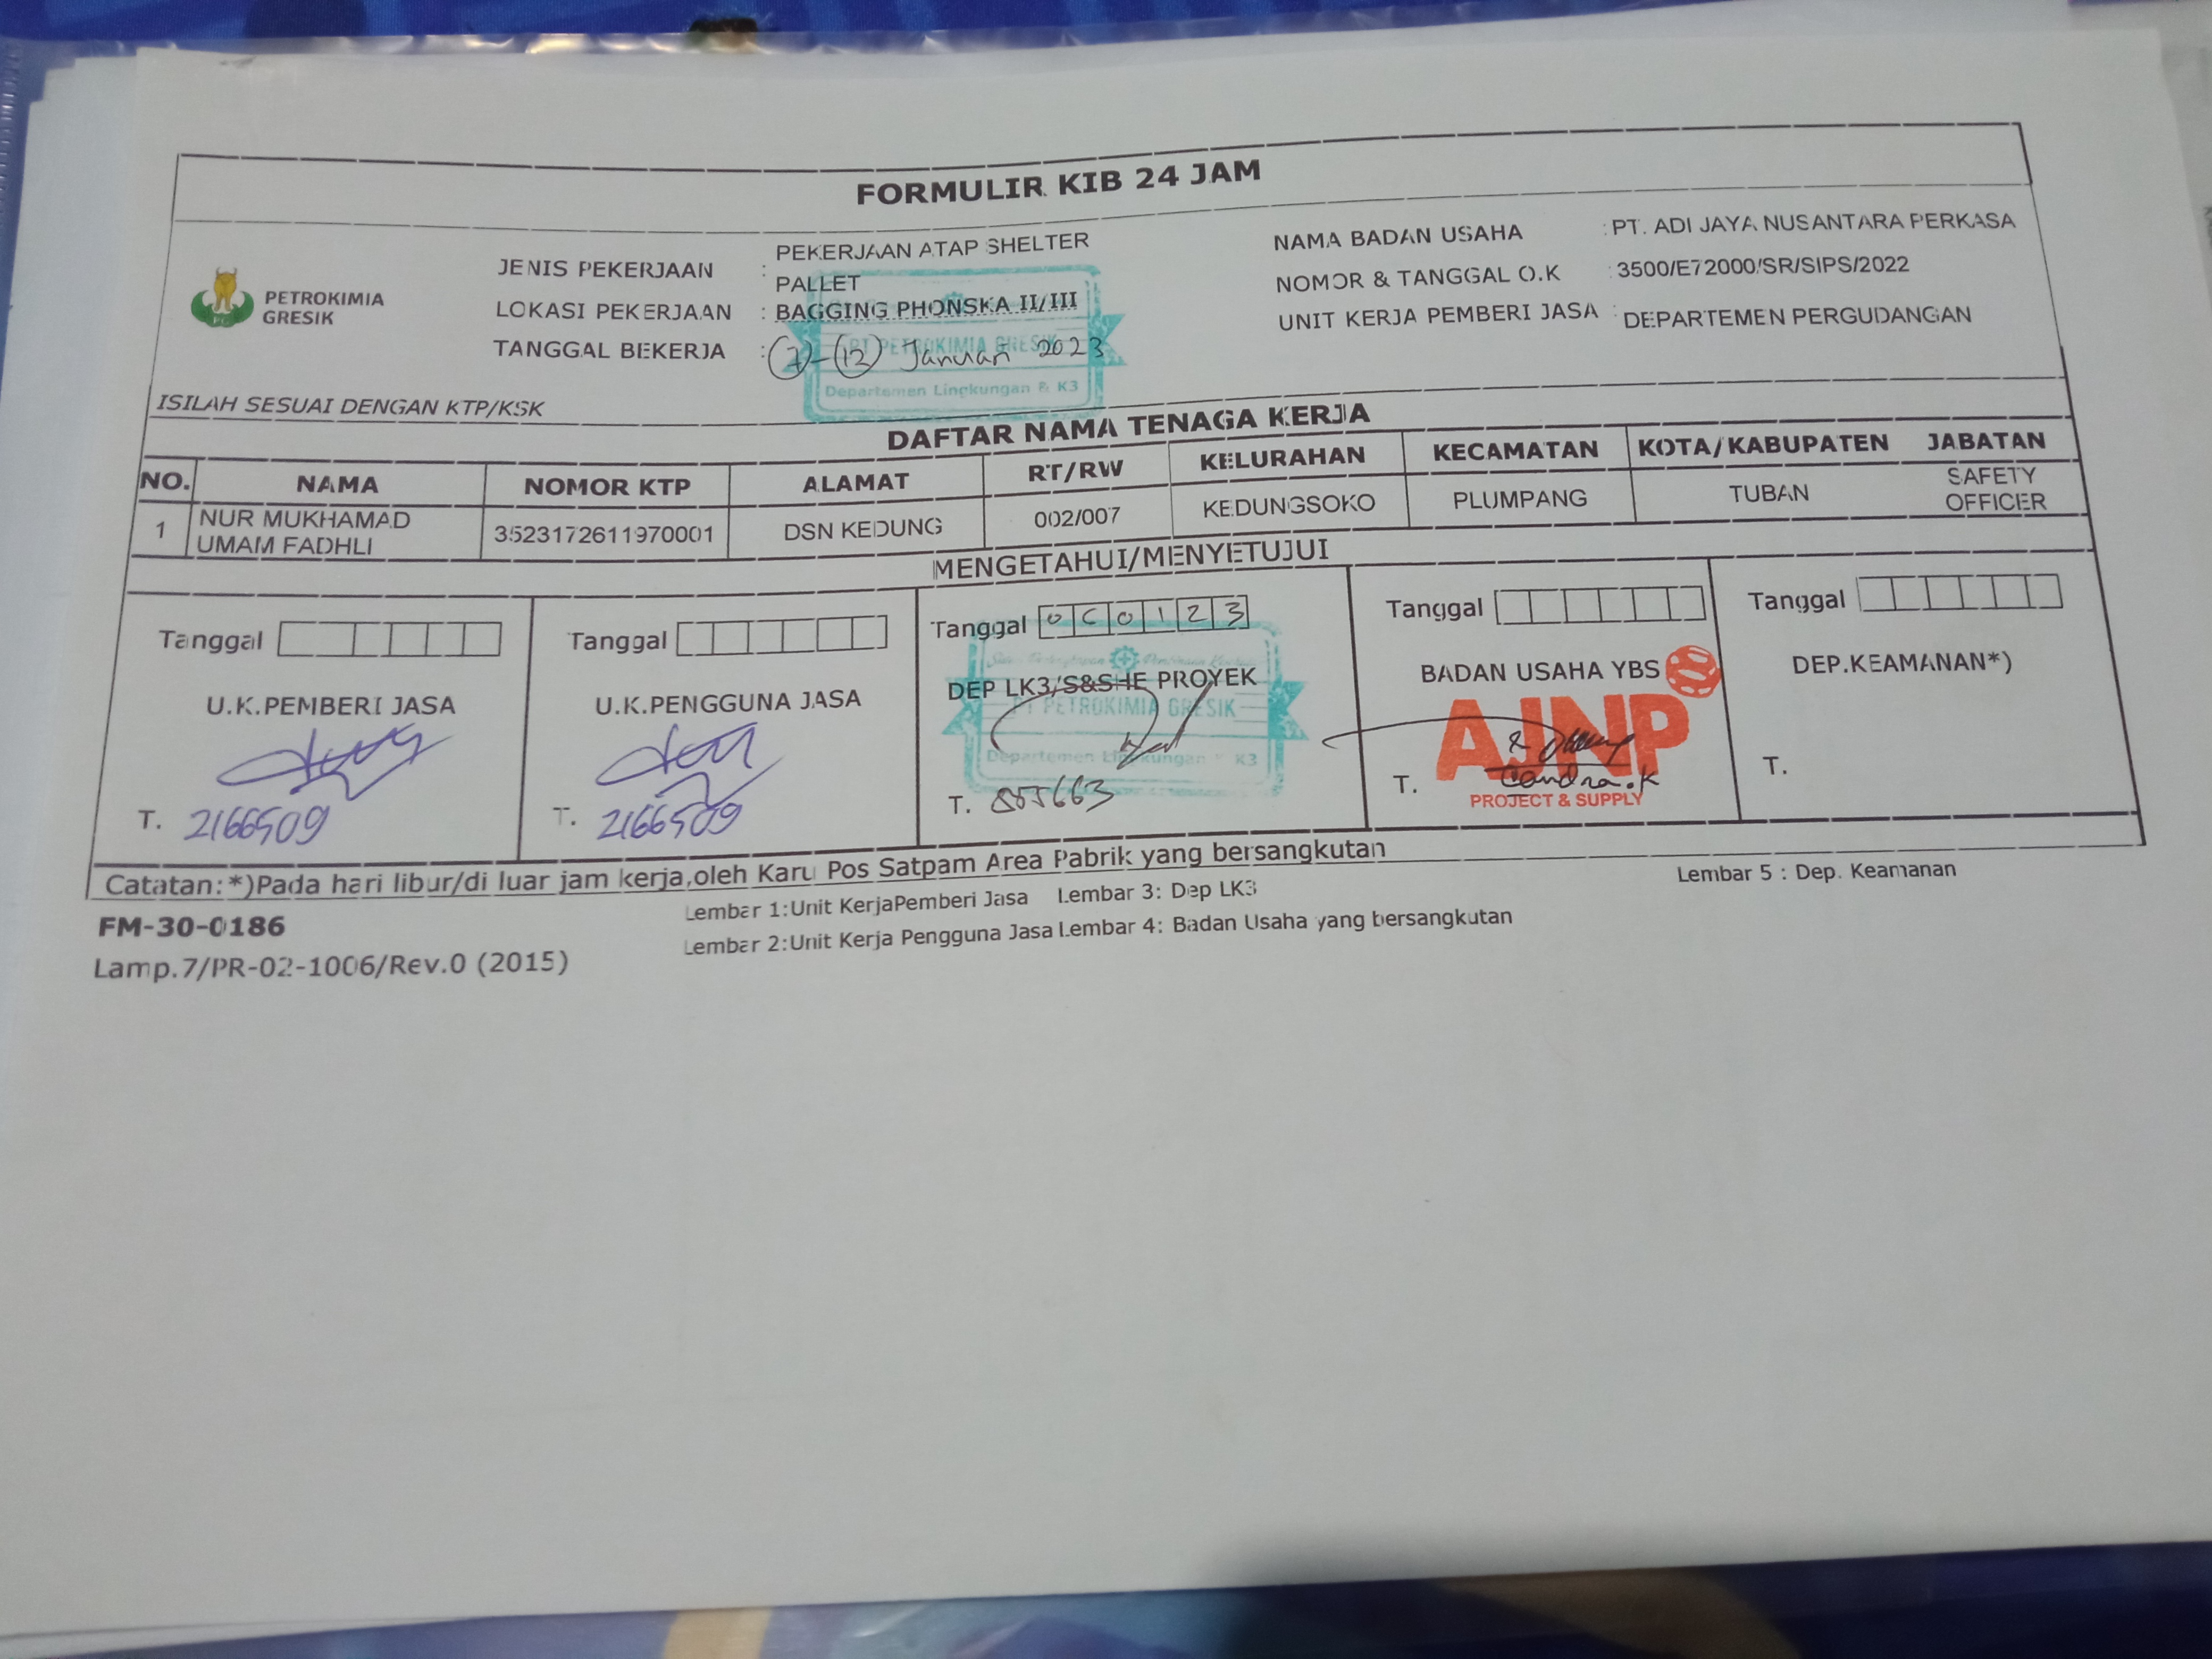 FORMULIR KIB 24 JAM
PETROKIMIA
GRESIK
JENIS PEKERJAAN : PEKERJAAN ATAP SHELTER
PALLET
LOKASI PEKERJAAN : BAGGING PHONSKA II/III
TANGGAL BEKERJA : 7 - 12 Januari 2023
NAMA BADAN USAHA : PT. ADI JAYA NUSANTARA PERKASA
NOMOR & TANGGAL O.K : 3500/E72000/SR/SIPS/2022
UNIT KERJA PEMBERI JASA : DEPARTEMEN PERGUDANGAN
PT PETROKIMIA GRESIK
Departemen Lingkungan & K3
ISILAH SESUAI DENGAN KTP/KSK
DAFTAR NAMA TENAGA KERJA
NO. NAMA NOMOR KTP ALAMAT RT/RW KELURAHAN KECAMATAN KOTA/KABUPATEN JABATAN
1 NUR MUKHAMAD 3523172611970001 DSN KEDUNG 002/007 KEDUNGSOKO PLUMPANG TUBAN SAFETY
UMAM FADHLI OFFICER
MENGETAHUI/MENYETUJUI
Tanggal
U.K.PEMBERI JASA
T. 2166509
Tanggal
U.K.PENGGUNA JASA
T. 2166509
Tanggal
DEP LK3/S&SHE PROYEK
PT PETROKIMIA GRESIK
Departemen Lingkungan K3
T.
Tanggal
BADAN USAHA YBS
AJNP
Candra.K
T.
PROJECT & SUPPLY
Tanggal
DEP.KEAMANAN*)
T.
Catatan:*)Pada hari libur/di luar jam kerja,oleh Karu Pos Satpam Area Pabrik yang bersangkutan
FM-30-0186
Lamp.7/PR-02-1006/Rev.0 (2015)
Lembar 1:Unit KerjaPemberi Jasa Lembar 3: Dep LK3
Lembar 2:Unit Kerja Pengguna Jasa Lembar 4: Badan Usaha yang bersangkutan
Lembar 5 : Dep. Keamanan